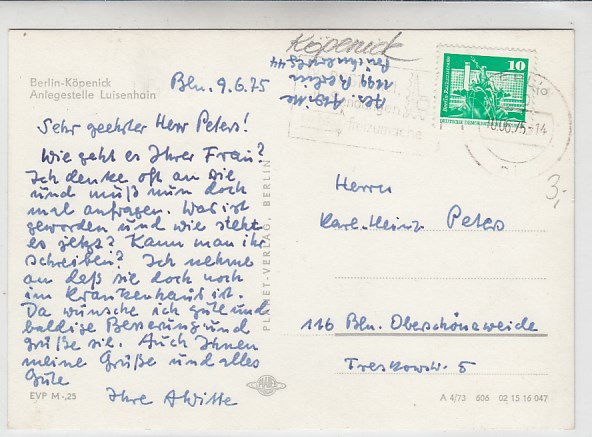 Berlin-Köpenick
Anlegestelle Luisenhain
Bln. 9.6.75
Sehr geehrter Herr Peters!
Wie geht es Ihrer Frau?
Ich denke oft an Sie
und muß nun doch
mal anfragen. Was ist
geworden und wie steht
es jetzt? Kann man ihr
schreiben? Ich nehme
an daß sie doch noch
im Krankenhaus ist.
Da wünsche ich gute und
baldige Besserung und
grüße sie. Auch Ihnen
meine Grüße und alles
Gute
Ihre AWitte
EVP M -,25
PLANET-VERLAG, BERLIN
PLANET
Köpenick
1199 Berlin
10
DEUTSCHE DEMOKRATISCHE REPUBLIK
.06.75-14
3,-
Herrn
Karl-Heinz Peters
116 Bln. Oberschöneweide
Treskowstr. 5
A 4/73 606 02 15 16 047